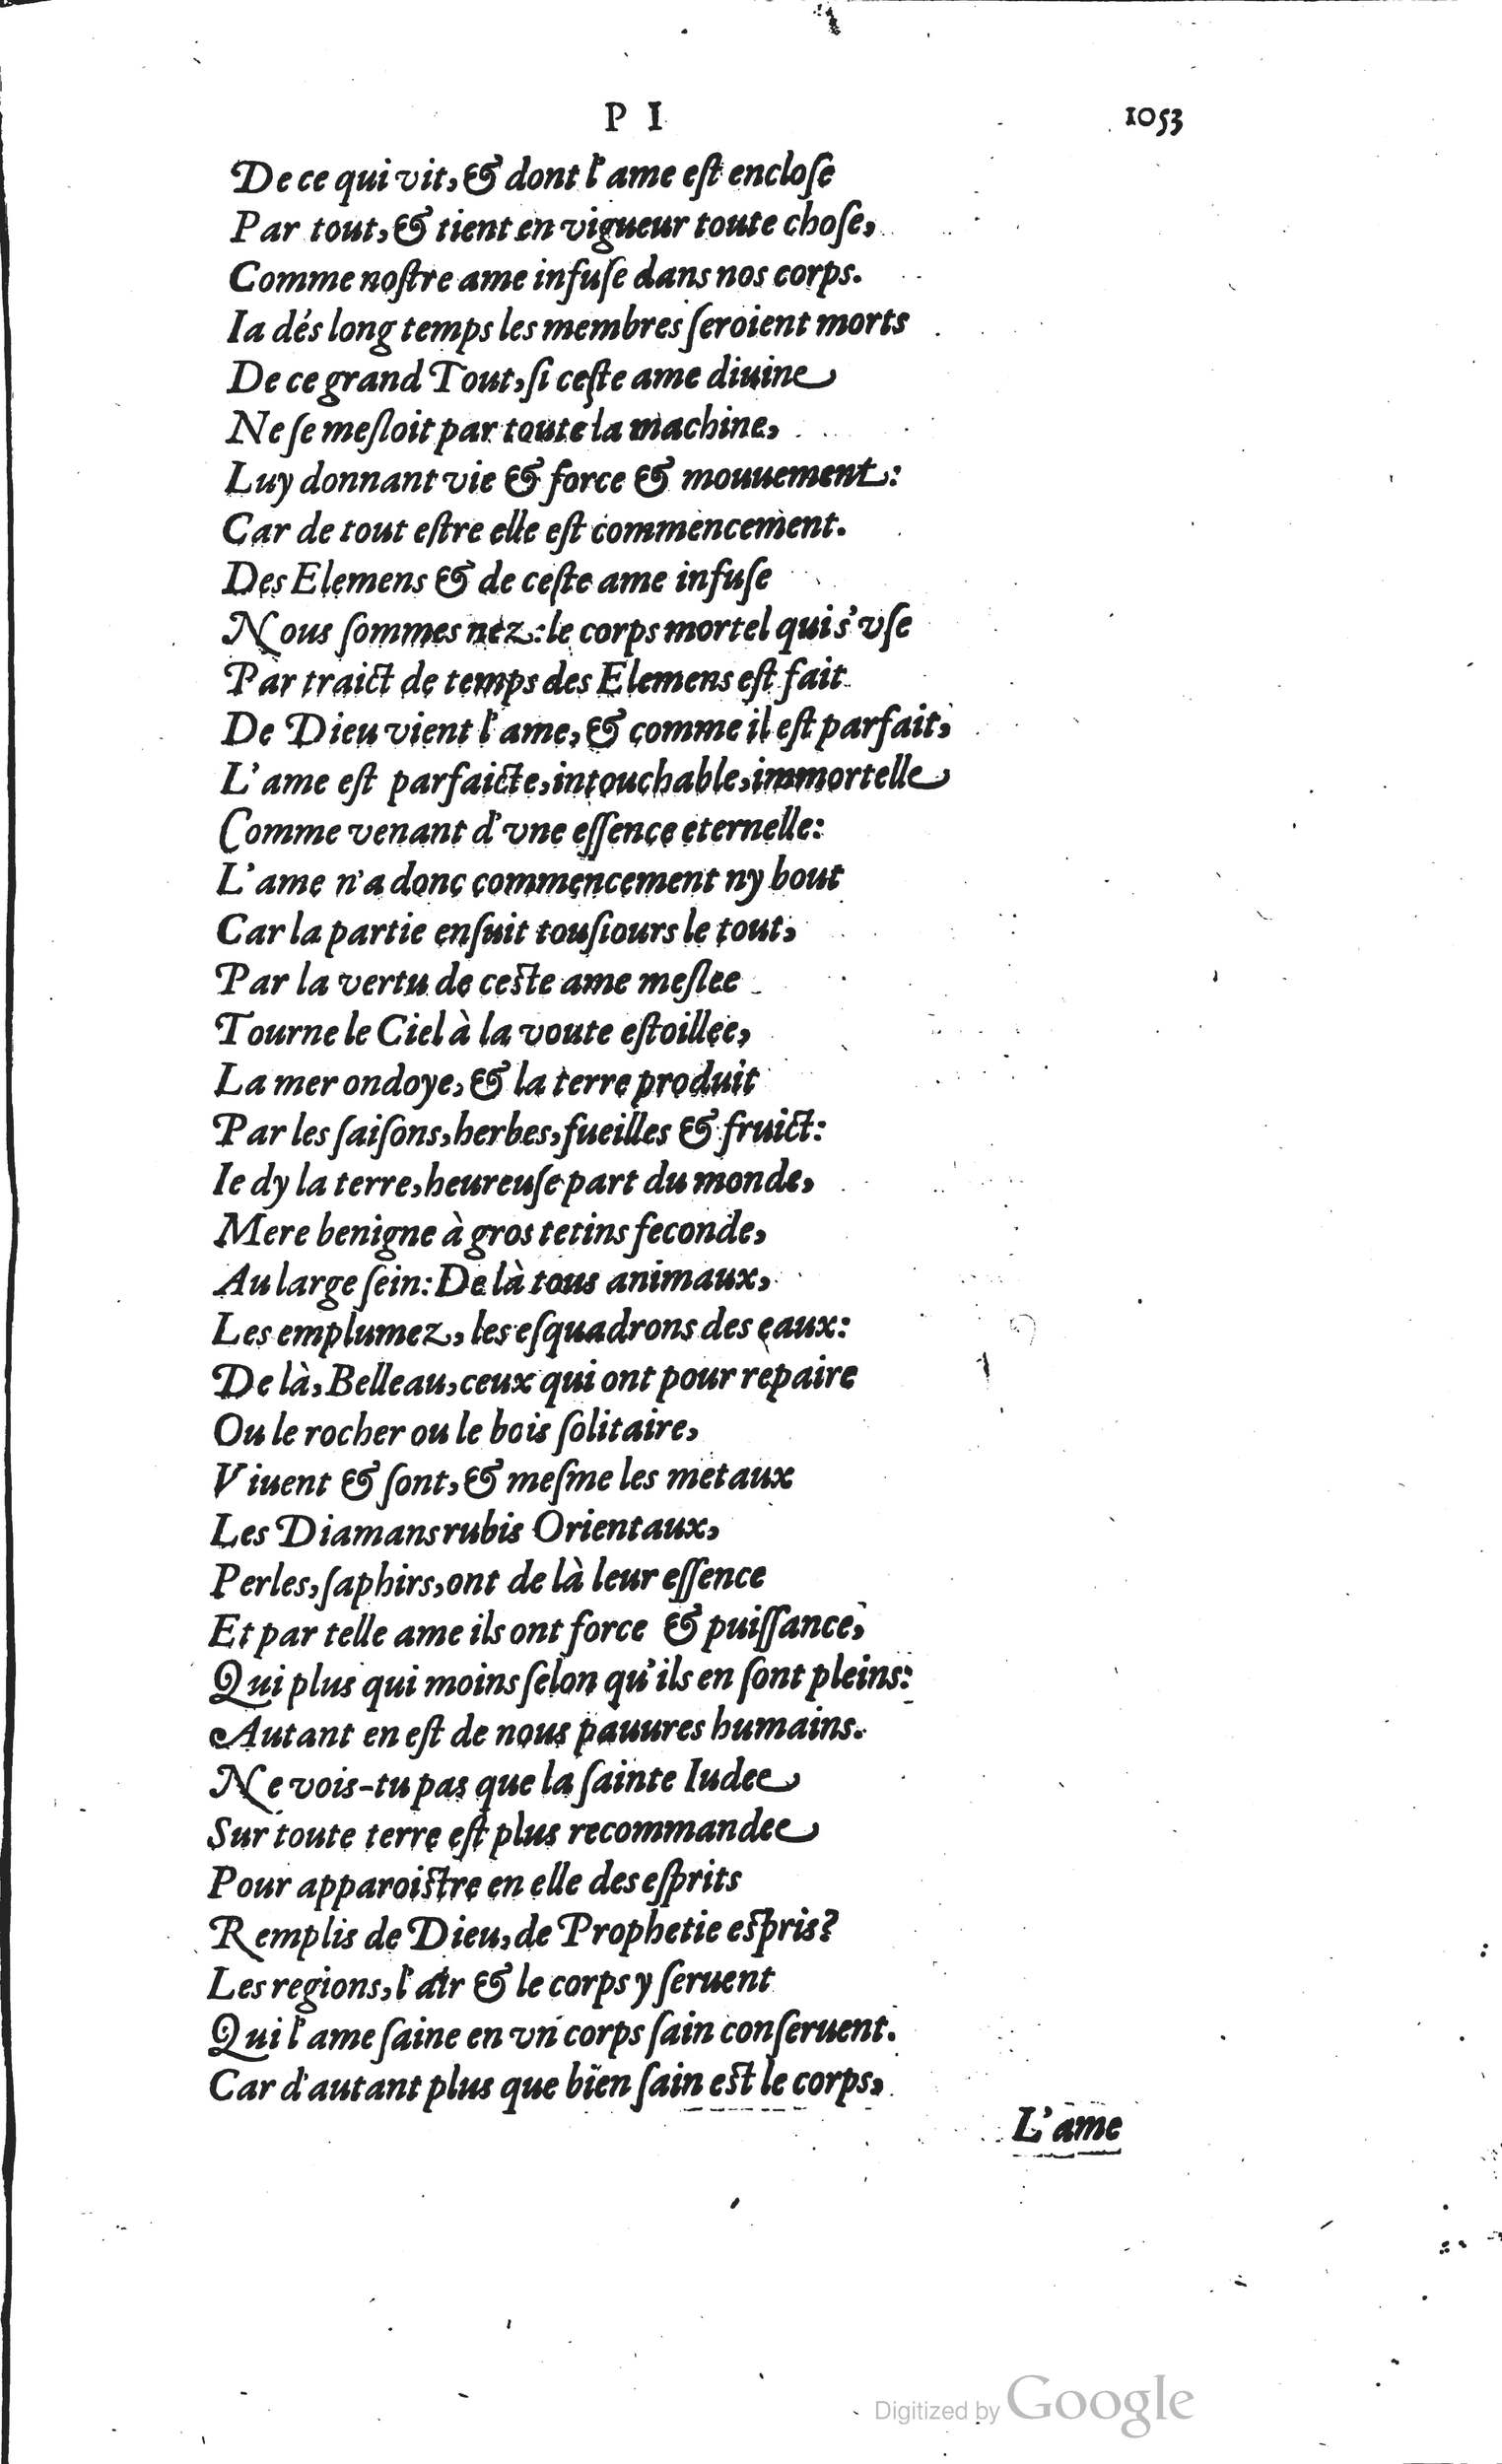 P I 1053
De ce qui vit, & dont l'ame eſt encloſe
Par tout, & tient en vigueur toute choſe,
Comme noſtre ame infuſe dans nos corps.
Ia dés long temps les membres ſeroient morts
De ce grand Tout, ſi ceſte ame diuine
Ne ſe meſloit par toute la machine,
Luy donnant vie & force & mouuement:
Car de tout eſtre elle eſt commencement.
Des Elemens & de ceſte ame infuſe
Nous ſommes nez: le corps mortel qui s'vſe
Par traict de temps des Elemens eſt fait
De Dieu vient l'ame, & comme il eſt parfait,
L'ame eſt parfaicte, intouchable, immortelle
Comme venant d'vne eſſence eternelle:
L'ame n'a donc commencement ny bout
Car la partie enſuit touſiours le tout,
Par la vertu de ceſte ame meſlee
Tourne le Ciel à la voute eſtoillee,
La mer ondoye, & la terre produit
Par les ſaiſons, herbes, fueilles & fruict:
Ie dy la terre, heureuſe part du monde,
Mere benigne à gros tetins feconde,
Au large ſein: De là tous animaux,
Les emplumez, les eſquadrons des eaux:
De là, Belleau, ceux qui ont pour repaire
Ou le rocher ou le bois ſolitaire,
Viuent & ſont, & meſme les metaux
Les Diamans rubis Orientaux,
Perles, ſaphirs, ont de là leur eſſence
Et par telle ame ils ont force & puiſſance,
Qui plus qui moins ſelon qu'ils en ſont pleins:
Autant en eſt de nous pauures humains.
Ne vois-tu pas que la ſainte Iudee
Sur toute terre eſt plus recommandee
Pour apparoiſtre en elle des eſprits
Remplis de Dieu, de Prophetie eſpris?
Les regions, l'air & le corps y ſeruent
Qui l'ame ſaine en vn corps ſain conſeruent.
Car d'autant plus que bien ſain eſt le corps,
L'ame
Digitized by Google